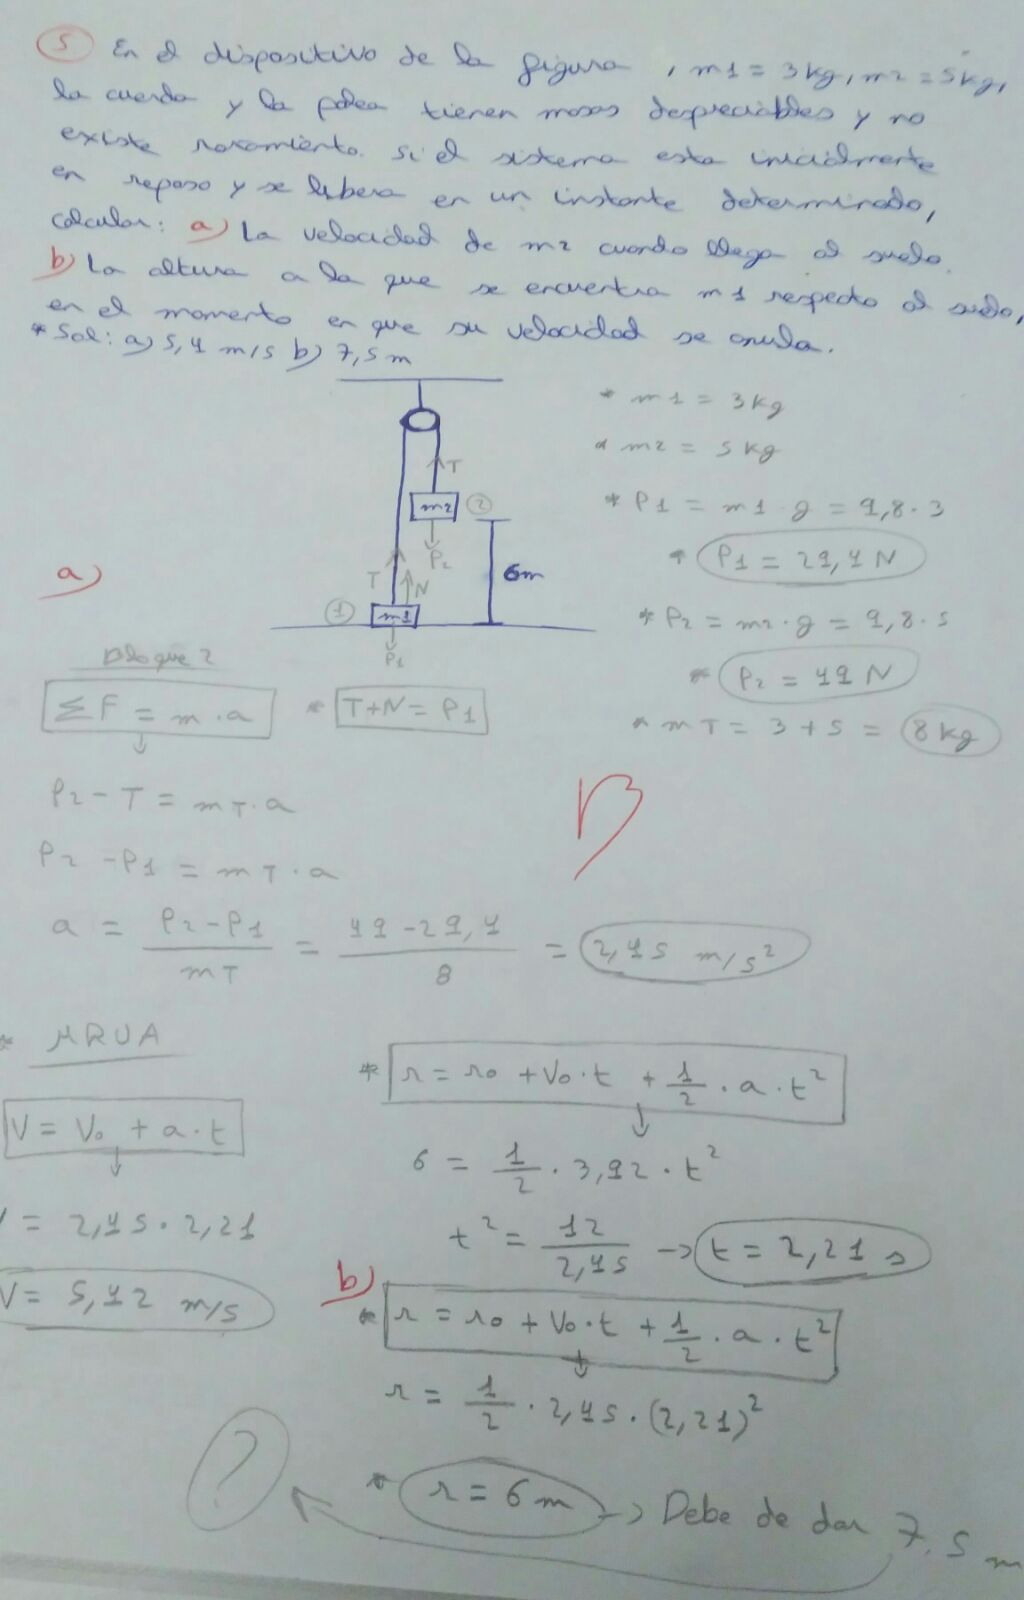 5 En el dispositivo de la figura, m1 = 3kg, m2 = 5kg,
la cuerda y la polea tienen masas despreciables y no
existe rozamiento. Si el sistema esta inicialmente
en reposo y se libera en un instante determinado,
calcular: a) La velocidad de m2 cuando llega al suelo.
b) La altura a la que se encuentra m1 respecto al suelo,
en el momento en que su velocidad se anula.
* Sol: a) 5,4 m/s b) 7,5 m
* m1 = 3kg
* m2 = 5kg
T
m2 2
* P1 = m1 · g = 9,8 · 3
P2
* P1 = 29,4 N
a)
6m
T N
1 m1
* P2 = m2 · g = 9,8 · 5
P1
Bloque 2
* P2 = 49 N
ΣF = m · a * T+N = P1
* mT = 3 + 5 = 8kg
P2 - T = mT · a
P2 - P1 = mT · a
a = P2 - P1 / mT = 49 - 29,4 / 8 = 2,45 m/s²
* MRUA
* r = r0 + V0 · t + 1/2 · a · t²
V = V0 + a · t
6 = 1/2 · 3,92 · t²
V = 2,45 · 2,21
t² = 12 / 2,45 -> t = 2,21 s
V = 5,42 m/s
b)
* r = r0 + V0 · t + 1/2 · a · t²
r = 1/2 · 2,45 · (2,21)²
?
* r = 6m -> Debe de dar 7,5 m